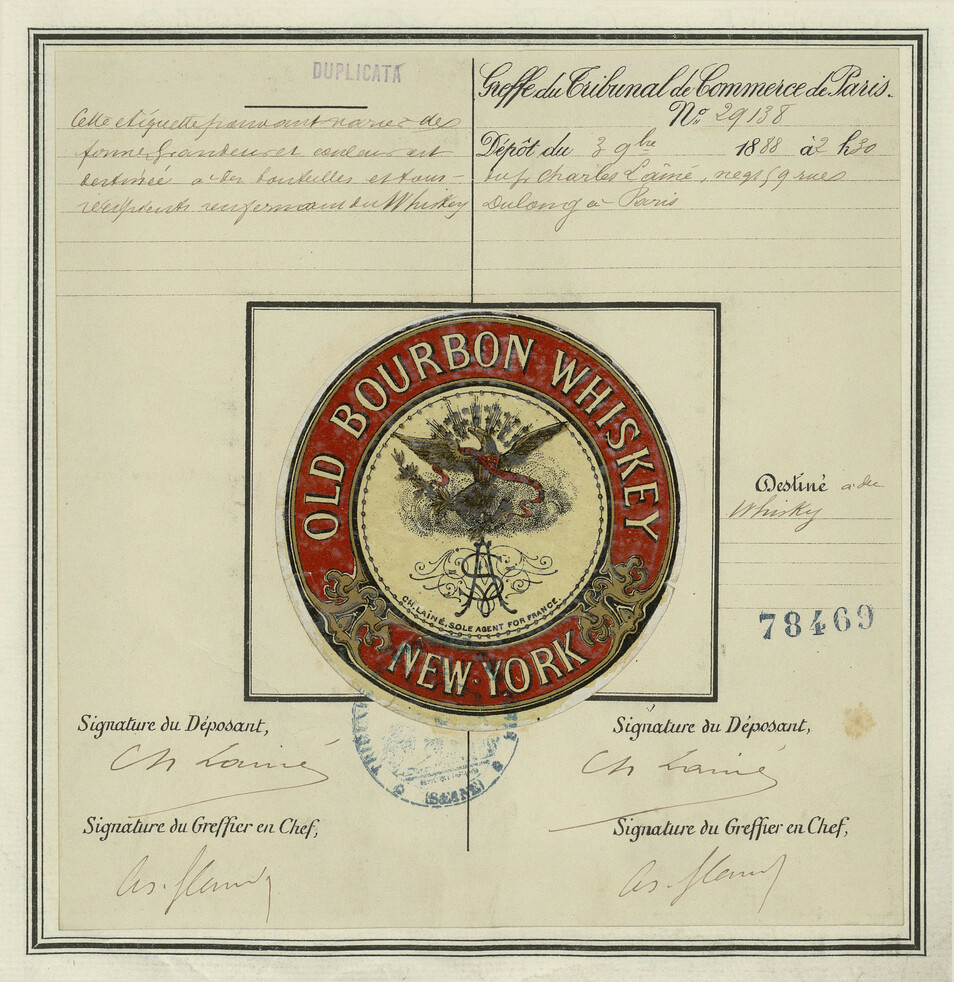 DUPLICATA
Cette étiquette pouvant varier de
forme, grandeur et couleur est
destinée à des bouteilles et tous
récipients renfermant du Whiskey
Greffe du Tribunal de Commerce de Paris.
No. 29138
Dépôt du 3 9bre 1888 à 2 h 30
Charles Lainé, negt, 59 rue
Dulong à Paris
OLD BOURBON WHISKEY
CH. LAINÉ, SOLE AGENT FOR FRANCE.
NEW-YORK
Destiné à du
Whisky
78469
Signature du Déposant,
Ch Lainé
Signature du Greffier en Chef,
Signature du Déposant,
Ch Lainé
Signature du Greffier en Chef,
(SEINE)